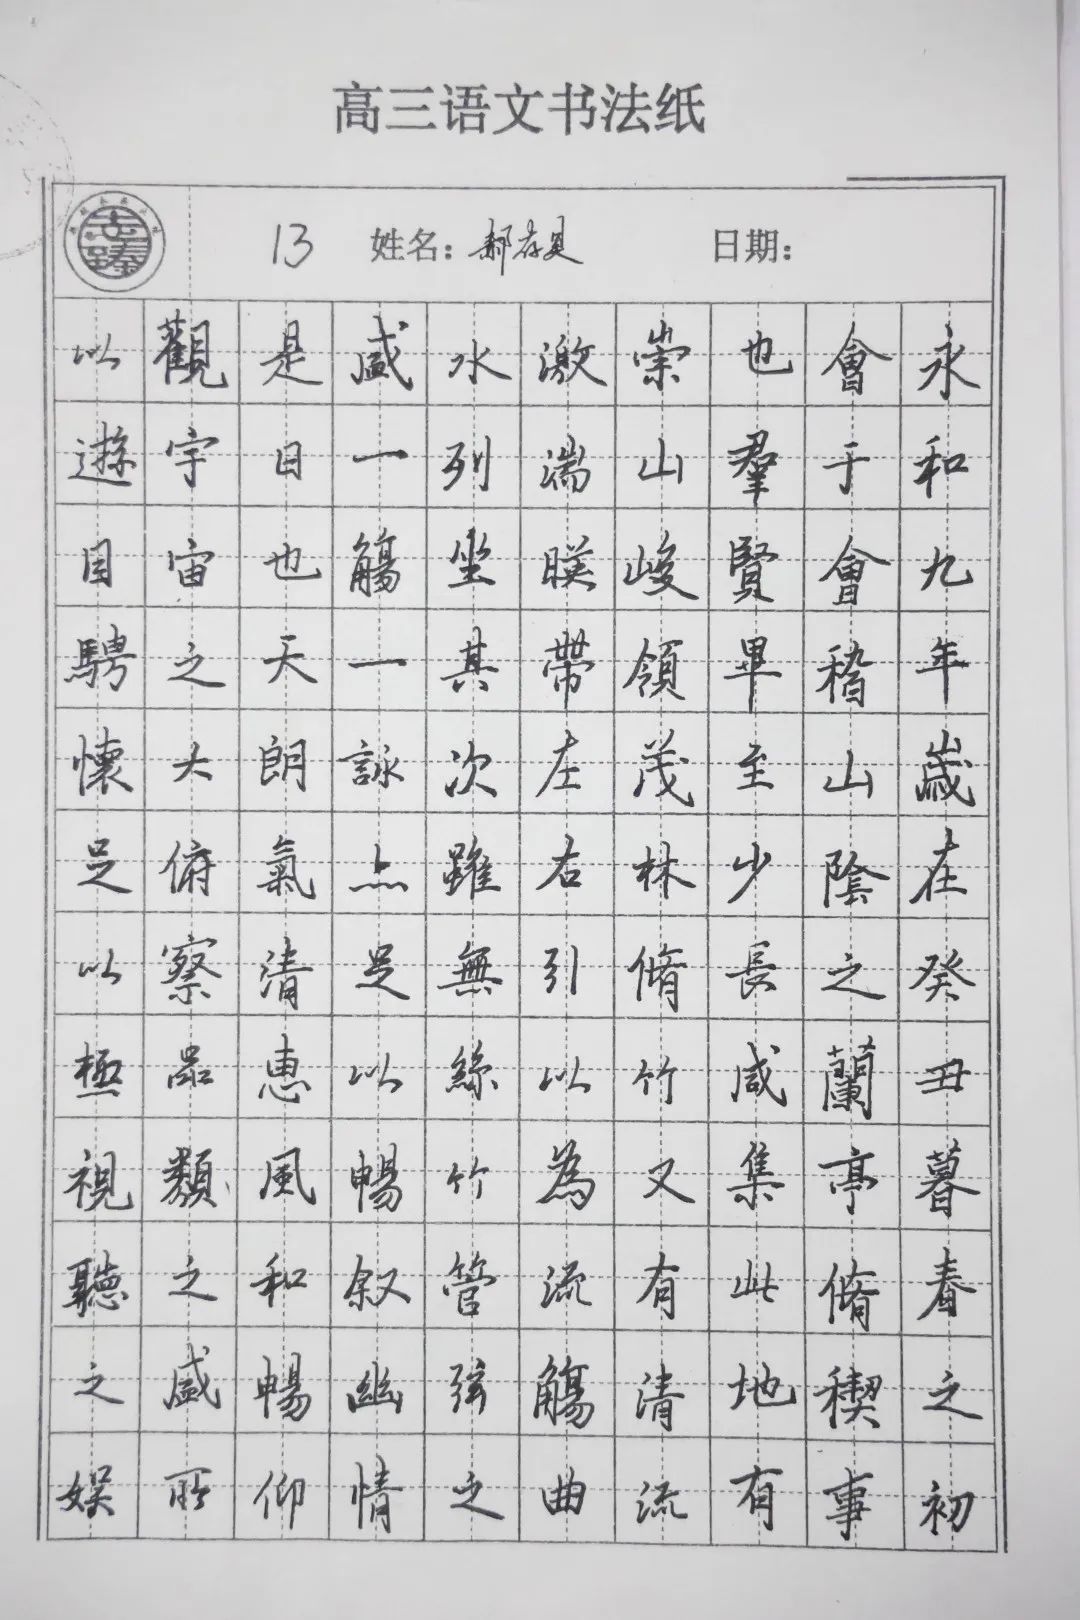 高三语文书法纸
13 姓名: 郝存 日期:
永和九年歲在癸丑暮春之初
會于會稽山陰之蘭亭脩稧事
也羣賢畢至少長咸集此地有
崇山峻領茂林脩竹又有清流
激湍暎帶左右引以為流觴曲
水列坐其次雖無絲竹管弦之
盛一觴一詠亦足以暢叙幽情
是日也天朗氣清惠風和暢仰
觀宇宙之大俯察品類之盛所
以遊目騁懷足以極視聽之娱